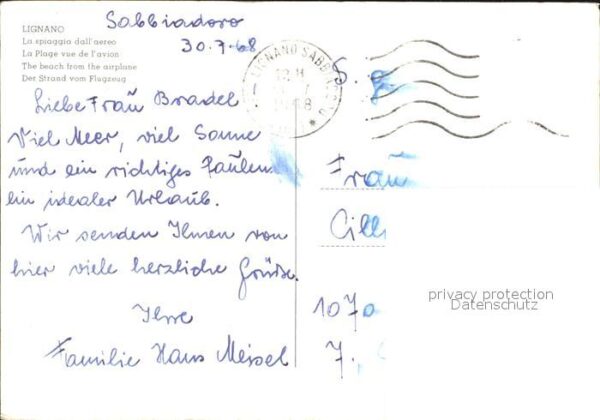 LIGNANO
La spiaggia dall'aereo
La Plage vue de l'avion
The beach from the airplane
Der Strand vom Flugzeug
Sabbiadoro
30.7.68
LIGNANO SABBIAD
Liebe Frau Bradel
Viel Meer, viel Sonne
und ein richtiges Faulen
ein idealer Urlaub.
Wir senden Ihnen von
hier viele herzliche Grüße.
Ihre
Familie Hans Meisel
S. g.
Frau
Cilli
1070
7.,
privacy protection
Datenschutz